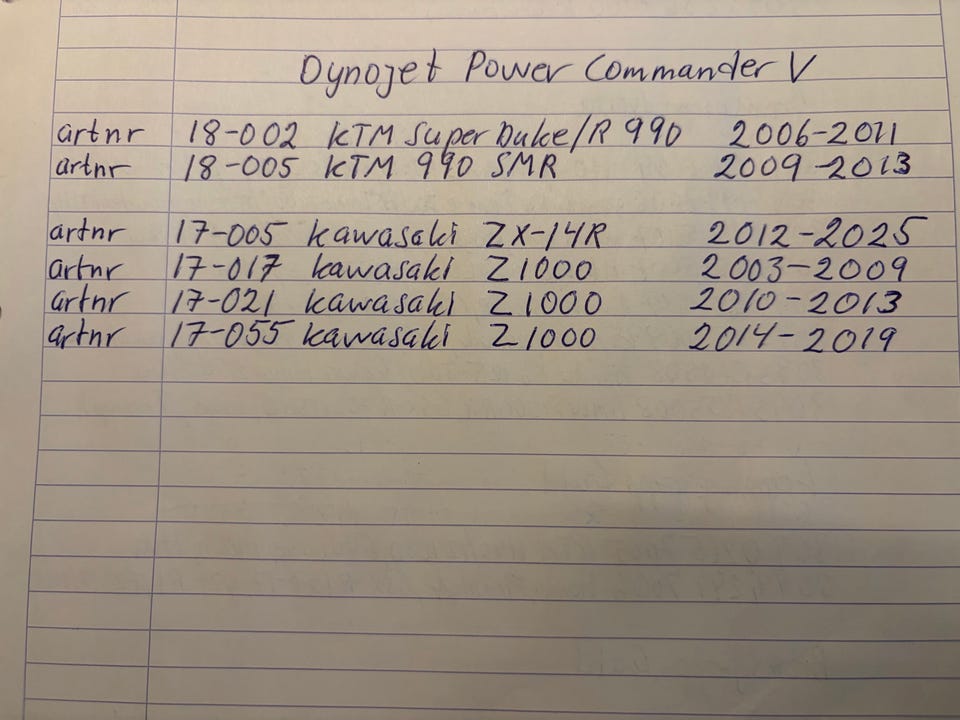 Dynojet Power Commander V
artnr 18-002 KTM Super Duke/R 990 2006-2011
artnr 18-005 KTM 990 SMR 2009-2013
artnr 17-005 kawasaki ZX-14R 2012-2025
artnr 17-017 kawasaki Z1000 2003-2009
artnr 17-021 kawasaki Z1000 2010-2013
artnr 17-055 kawasaki Z1000 2014-2019